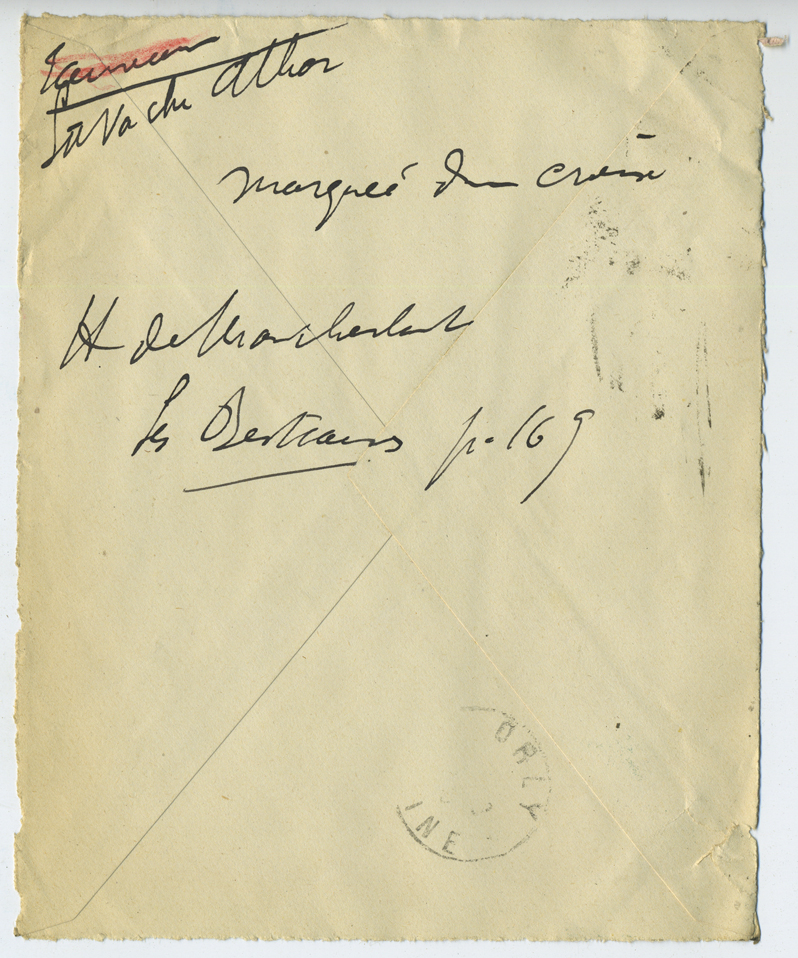 Taureau
La Vache Athor
marqueé d'un croissant
H de Montherlant
Les Bestiaires p. 169
ORLY
INE